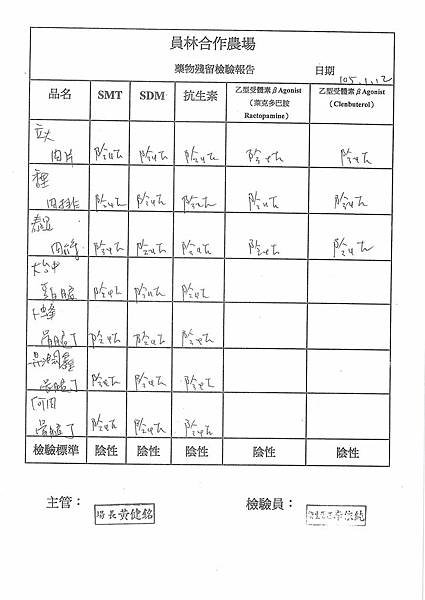 員林合作農場
藥物殘留檢驗報告
日期 105.1.12
品名 SMT SDM 抗生素 乙型受體素βAgonist (萊克多巴胺 Ractopamine) 乙型受體素βAgonist (Clenbuterol)
立大
肉片 陰性 陰性 陰性 陰性 陰性
肉排 陰性 陰性 陰性 陰性 陰性
陰性 陰性 陰性 陰性 陰性
大台中
陰性 陰性 陰性
卜蜂
骨腿丁 陰性 陰性 陰性
骨腿丁 陰性 陰性 陰性
骨腿丁 陰性 陰性 陰性
檢驗標準 陰性 陰性 陰性 陰性 陰性
主管： 場長黃健銘
檢驗員：